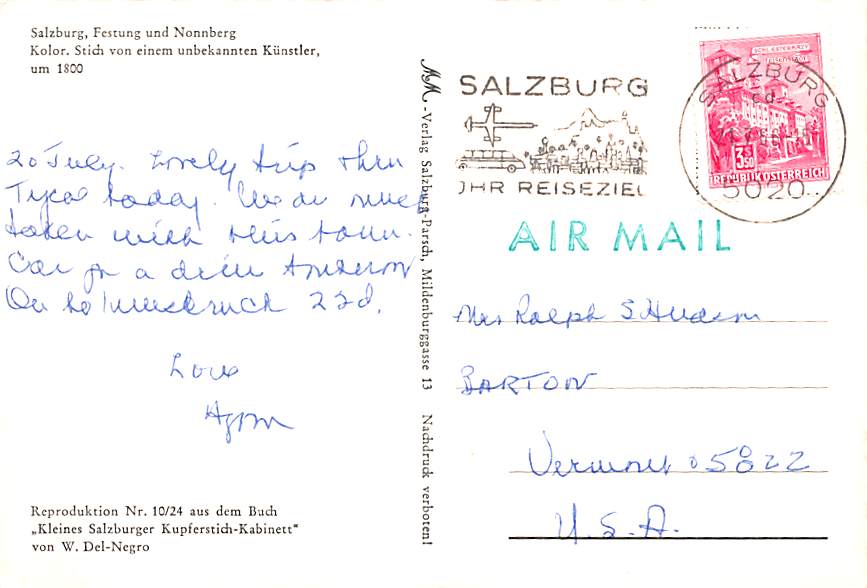 Salzburg, Festung und Nonnberg
Kolor. Stich von einem unbekannten Künstler,
um 1800
20 July. Lovely trip thru
today. We are much
taken with this town.
Car for a drive tomorrow
On to Innsbruck 22d.
Love
Reproduktion Nr. 10/24 aus dem Buch
„Kleines Salzburger Kupferstich-Kabinett“
von W. Del-Negro
MM-Verlag Salzburg-Parsch, Mildenburggasse 13 Nachdruck verboten!
SALZBURG
IHR REISEZIEL
SALZBURG
5020
3.50
REPUBLIK ÖSTERREICH
AIR MAIL
Mrs Ralph S Hudson
BARTON
Vermont 05822
U.S.A.